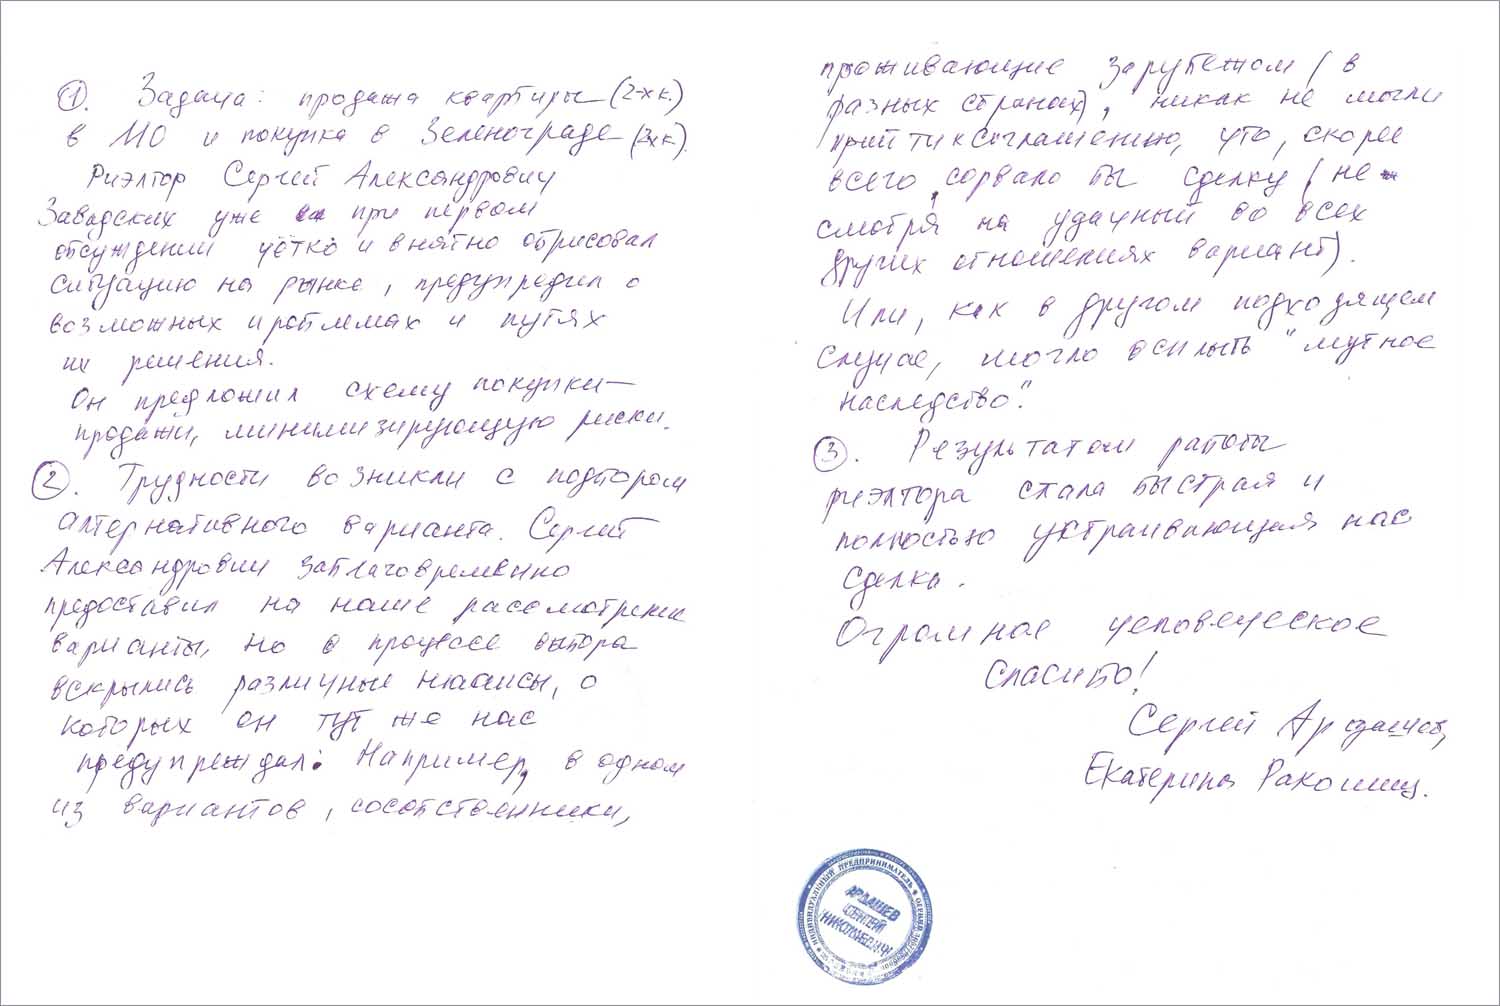 1. Задача: продажа квартиры (2-х к.)
в МО и покупка в Зеленограде (3х к).
Риэлтор Сергей Александрович
Завадских уже при первом
обсуждении чётко и внятно обрисовал
ситуацию на рынке, предупредил о
возможных проблемах и путях
их решения.
Он предложил схему покупки-
продажи, минимизирующую риски.
2. Трудности возникли с подбором
алтернативного варианта. Сергей
Александрович заблаговременно
предоставил на наше рассмотрение
варианты, но в процессе выбора
вскрылись различные нюансы, о
которых он тут же нас
предупреждал. Например, в одном
из вариантов, сособственники,
проживающие зарубежом (в
разных странах), никак не могли
прийти к соглашению, что, скорее
всего, сорвало бы сделку (не
смотря на удачный во всех
других отношениях вариант).
Или, как в другом подходящем
случае, могло всплыть "мутное
наследство".
3. Результатом работы
риэлтора стала быстрая и
полностью устраивающая нас
сделка.
Огромное человеческое
спасибо!
Сергей Ардашев,
Екатерина Ракошиц.
ИНДИВИДУАЛЬНЫЙ ПРЕДПРИНИМАТЕЛЬ
АРДАШЕВ
СЕРГЕЙ